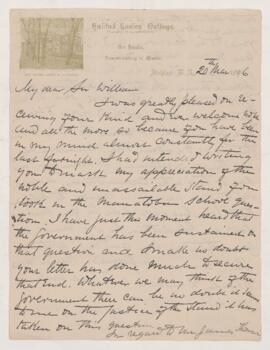 Halifax Ladies' College.
Conservatory of Music.
Halifax, N. S. 20th Mar 1896
My dear Sir William
I was greatly pleased on re-
ceiving your kind and welcome note
and all the more so because you have been
in my mind almost constantly for the
last fortnight. I had intended writing
you to mark my appreciation of the
noble and unassailable stand you
took in the Manitoba school ques-
tion. I have just this moment heard that
the Government has been sustained on
that question and I make no doubt
your letter has done much to secure
that end. Whatever we may think of the
Government there can be no doubt it seems
to me on the justice of the stand it has
taken on this question
In regard to Mr James